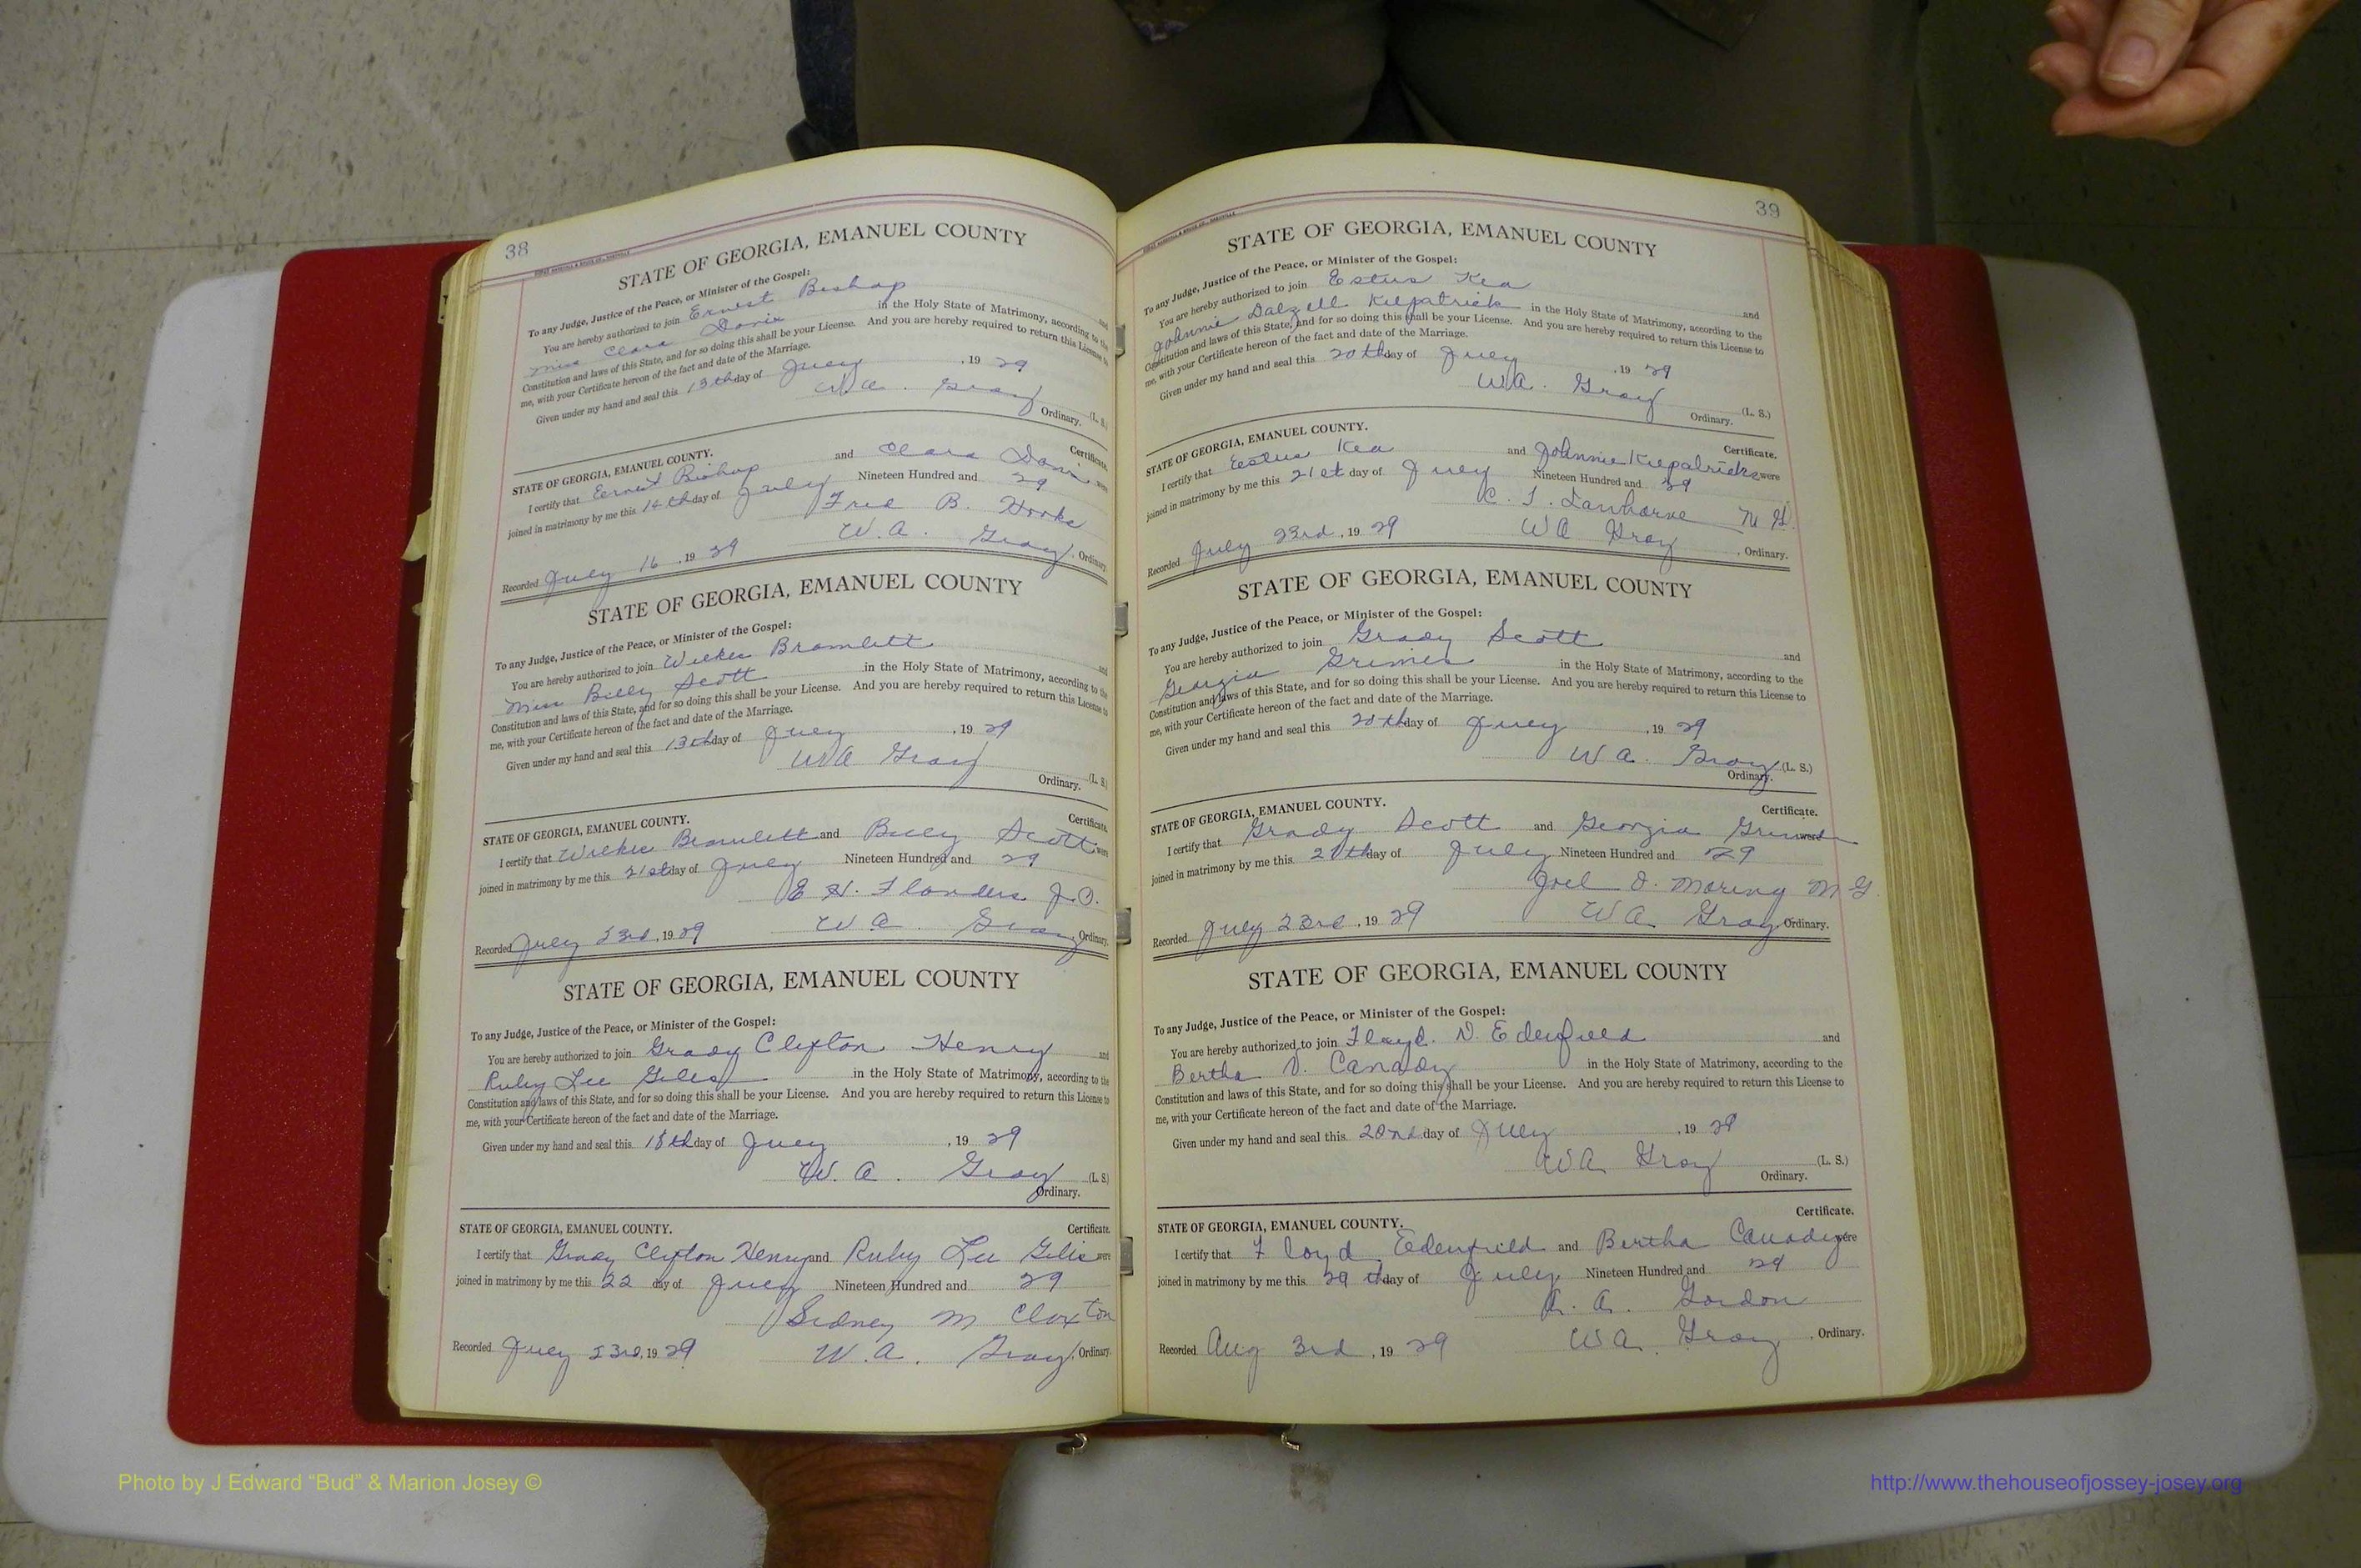 38
STATE OF GEORGIA, EMANUEL COUNTY
To any Judge, Justice of the Peace, or Minister of the Gospel:
You are hereby authorized to join Ernest Bishop and
Miss Clara Davis in the Holy State of Matrimony, according to the
Constitution and laws of this State, and for so doing this shall be your License. And you are hereby required to return this License to
me, with your Certificate hereon of the fact and date of the Marriage.
Given under my hand and seal this 13th day of July, 1929
W.A. Gray (L. S.)
Ordinary.
STATE OF GEORGIA, EMANUEL COUNTY. Certificate.
I certify that Ernest Bishop and Clara Davis were
joined in matrimony by me this 14th day of July Nineteen Hundred and 29
Fred B. Hooks
Recorded July 16, 1929 W.A. Gray, Ordinary.
STATE OF GEORGIA, EMANUEL COUNTY
To any Judge, Justice of the Peace, or Minister of the Gospel:
You are hereby authorized to join Wilkie Bramlett and
Miss Billy Scott in the Holy State of Matrimony, according to the
Constitution and laws of this State, and for so doing this shall be your License. And you are hereby required to return this License to
me, with your Certificate hereon of the fact and date of the Marriage.
Given under my hand and seal this 13th day of July, 1929
W A Gray (L. S.)
Ordinary.
STATE OF GEORGIA, EMANUEL COUNTY. Certificate.
I certify that Wilkie Bramlett and Billy Scott were
joined in matrimony by me this 21st day of July Nineteen Hundred and 29
E H. Flanders J.P.
Recorded July 23rd, 1929 W A. Gray, Ordinary.
STATE OF GEORGIA, EMANUEL COUNTY
To any Judge, Justice of the Peace, or Minister of the Gospel:
You are hereby authorized to join Grady Clifton Henry and
Ruby Lee Gillis in the Holy State of Matrimony, according to the
Constitution and laws of this State, and for so doing this shall be your License. And you are hereby required to return this License to
me, with your Certificate hereon of the fact and date of the Marriage.
Given under my hand and seal this 18th day of July, 1929
W. A. Gray (L. S.)
Ordinary.
STATE OF GEORGIA, EMANUEL COUNTY. Certificate.
I certify that Grady Clifton Henry and Ruby Lee Gillis were
joined in matrimony by me this 22 day of July Nineteen Hundred and 29
Sidney M Claxton
Recorded July 23rd, 1929 W. A. Gray, Ordinary.
39
STATE OF GEORGIA, EMANUEL COUNTY
To any Judge, Justice of the Peace, or Minister of the Gospel:
You are hereby authorized to join Estus Kea and
Johnnie Dalzell Kilpatrick in the Holy State of Matrimony, according to the
Constitution and laws of this State, and for so doing this shall be your License. And you are hereby required to return this License to
me, with your Certificate hereon of the fact and date of the Marriage.
Given under my hand and seal this 20th day of July, 1929
W.A. Gray (L. S.)
Ordinary.
STATE OF GEORGIA, EMANUEL COUNTY. Certificate.
I certify that Estus Kea and Johnnie Kilpatrick were
joined in matrimony by me this 21st day of July Nineteen Hundred and 29
M G.
Recorded July 23rd, 1929 W A Gray, Ordinary.
STATE OF GEORGIA, EMANUEL COUNTY
To any Judge, Justice of the Peace, or Minister of the Gospel:
You are hereby authorized to join Grady Scott and
Georgia Grimes in the Holy State of Matrimony, according to the
Constitution and laws of this State, and for so doing this shall be your License. And you are hereby required to return this License to
me, with your Certificate hereon of the fact and date of the Marriage.
Given under my hand and seal this 20th day of July, 1929
W A. Gray (L. S.)
Ordinary.
STATE OF GEORGIA, EMANUEL COUNTY. Certificate.
I certify that Grady Scott and Georgia Grimes were
joined in matrimony by me this day of July Nineteen Hundred and 29
Joel Moring M G.
Recorded July 23rd, 1929 W A. Gray, Ordinary.
STATE OF GEORGIA, EMANUEL COUNTY
To any Judge, Justice of the Peace, or Minister of the Gospel:
You are hereby authorized to join Floyd. D. Edenfield and
Bertha D. Canady in the Holy State of Matrimony, according to the
Constitution and laws of this State, and for so doing this shall be your License. And you are hereby required to return this License to
me, with your Certificate hereon of the fact and date of the Marriage.
Given under my hand and seal this day of July, 1929
W.A. Gray (L. S.)
Ordinary.
STATE OF GEORGIA, EMANUEL COUNTY. Certificate.
I certify that Floyd Edenfield and Bertha Canady were
joined in matrimony by me this 29th day of July Nineteen Hundred and 29
A. Gordon
Recorded Aug 3rd, 1929 W A. Gray, Ordinary.
Photo by J Edward “Bud” & Marion Josey ©
http://www.thehouseofjossey-josey.org